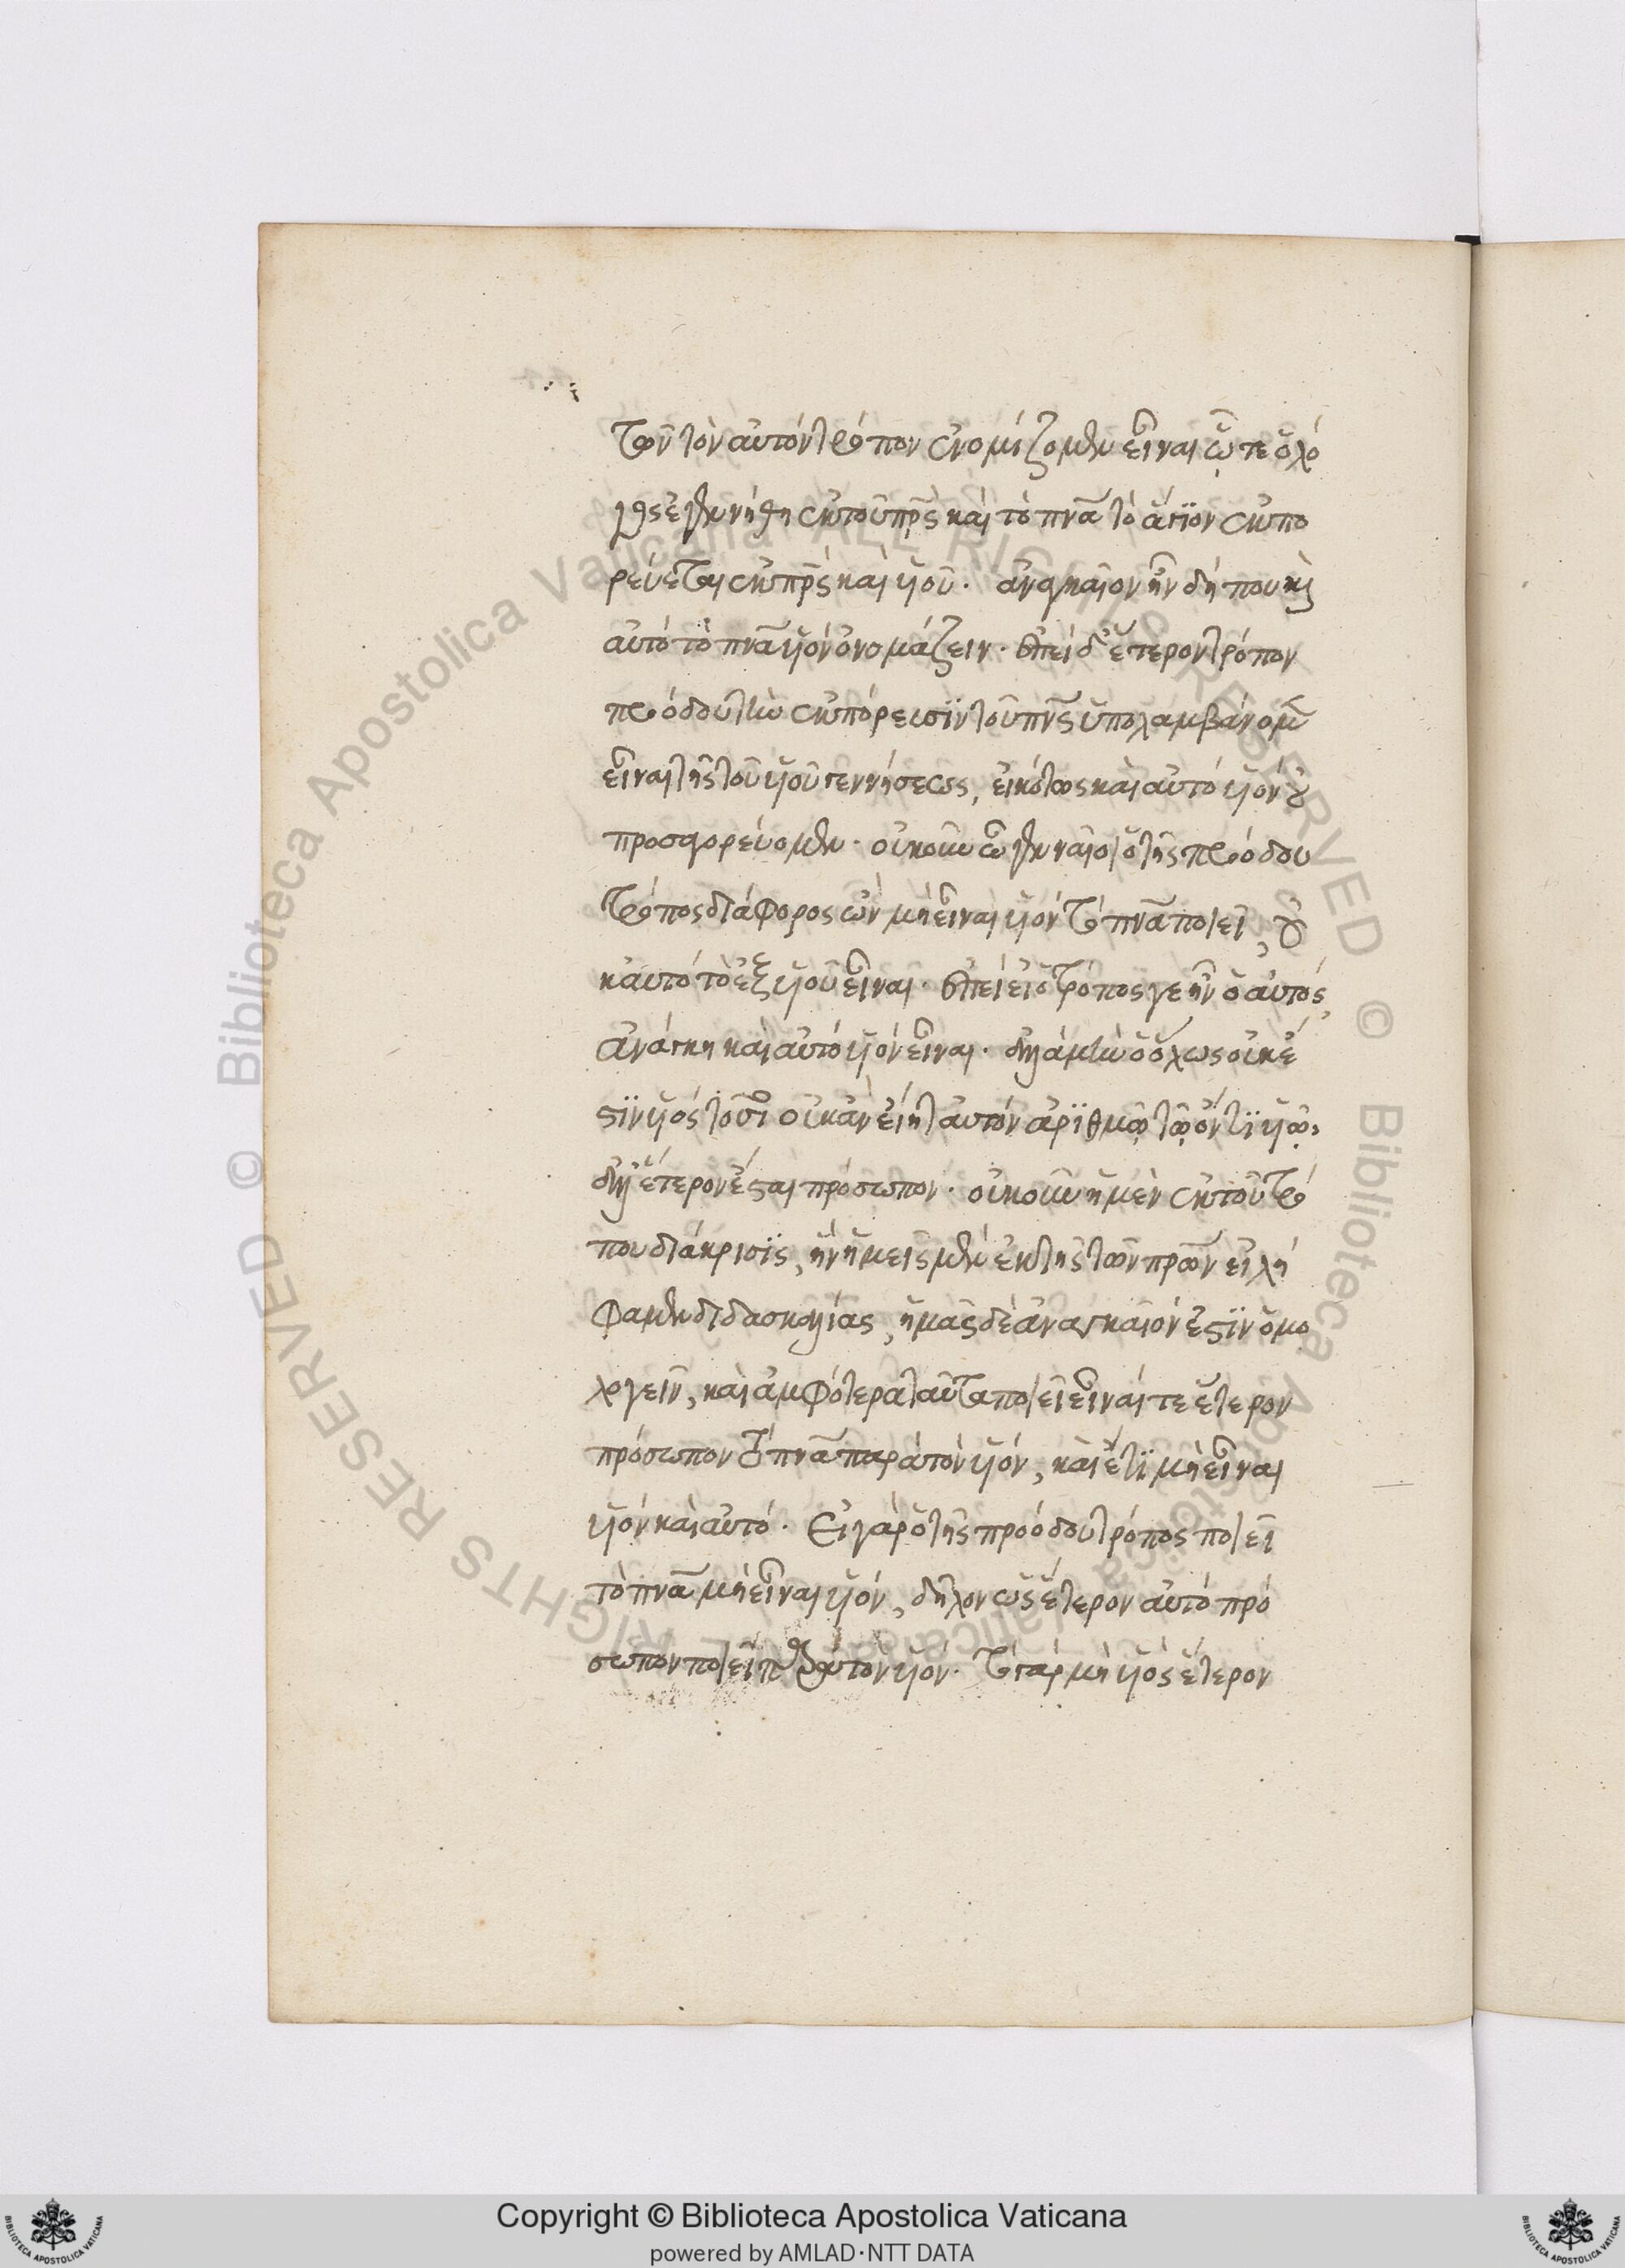 τοῦν τὸν αὐτὸν τρόπον ἐνομίζομεν εἶναι ᾧτε ὁ λό
γος ἐγεννήθη ἐκ τοῦ πρ̅ς καὶ τὸ πνα̅ τὸ ἅγϊον ἐκπο
ρεύεται ἐκ πρ̅ς καὶ υἱοῦ. ἀναγκαῖον ἦν δήπου καὶ
αὐτὸ τὸ πνα̅ υἱὸν ὀνομάζειν. ἐπεὶ δ' ἕτερον τρόπον
προόδου τὴν ἐκπόρευσϊν τοῦ πν̅ς ὑπολαμβάνομεν
εἶναι τῆς τοῦ υἱοῦ γεννήσεως, εἰκότως καὶ αὐτὸ υἱὸν οὐ
προσαγορεύομεν. οὐκοῦν ὦ γενναῖοι ὁ τῆς προόδου
τρόπος διάφορος ὢν μὴ εἶναι υἱὸν τὸ πνα̅ ποιεῖ, οὐ
κ αὐτὸ τὸ ἐξ υἱοῦ εἶναι. ἐπεὶ εἰ ὁ τρόπος γε ἦν ὁ αὐτός,
ἀνάγκη καὶ αὐτὸ υἱὸν εἶναι. ἀλλὰ μὴν ὃ ὅλως οὐκ ἔ
στϊν υἱὸς τοῦτο οὐκ ἂν εἴη ταυτὸν ἀρϊθμῷ τῷ ὄντϊ υἱῷ,
ἀλλ' ἕτερον ἔσται πρόσωπον. οὐκοῦν ἡ μὲν ἐκ τοῦ τρό
που διάκρισϊς, ἣν ἡμεῖς μὲν ἐκ τῆς τῶν πρω̅ν εἰλή
φαμεν διδασκαλίας, ἡμᾶς δὲ ἀναγκαῖον ἐστϊν ὁμο
λογεῖν, καὶ ἀμφότερα ταῦτα ποιεῖ εἶναί τε ἕτερον
πρόσωπον τὸ πνα̅ παρὰ τὸν υἱόν, καὶ ἔτϊ μὴ εἶναι
υἱὸν καὶ αὐτό. Εἰ γὰρ ὁ τῆς προόδου τρόπος ποιεῖ
τὸ πνα̅ μὴ εἶναι υἱόν, δῆλον ὡς ἕτερον αὐτὸ πρό
σωπον ποιεῖ παρ' αὐτὸν υἱόν. τὸ γὰρ μὴ υἱὸς ἕτερον
Copyright © Biblioteca Apostolica Vaticana
powered by AMLAD·NTT DATA